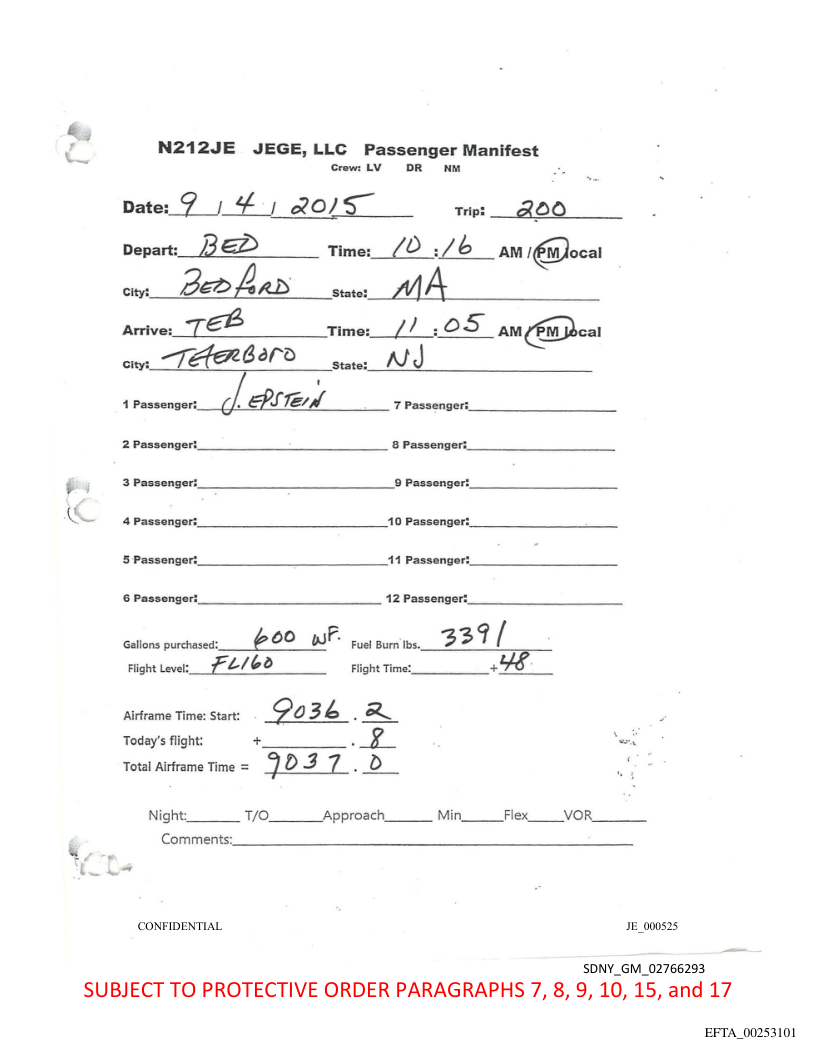 N212JE JEGE, LLC Passenger Manifest
Crew: LV DR NM
Date: 9 / 4 / 2015 Trip: 200
Depart: BED Time: 10 : 16 AM / PM local
City: BEDFORD State: MA
Arrive: TEB Time: 11 : 05 AM / PM local
City: TETERBORO State: NJ
1 Passenger: J. EPSTEIN 7 Passenger:
2 Passenger: 8 Passenger:
3 Passenger: 9 Passenger:
4 Passenger: 10 Passenger:
5 Passenger: 11 Passenger:
6 Passenger: 12 Passenger:
Gallons purchased: 600 WF. Fuel Burn lbs. 3391
Flight Level: FL160 Flight Time: +48
Airframe Time: Start: 9036 . 2
Today's flight: + . 8
Total Airframe Time = 9037 . 0
Night: T/O Approach Min Flex VOR
Comments:
CONFIDENTIAL JE_000525
SDNY_GM_02766293
SUBJECT TO PROTECTIVE ORDER PARAGRAPHS 7, 8, 9, 10, 15, and 17
EFTA_00253101